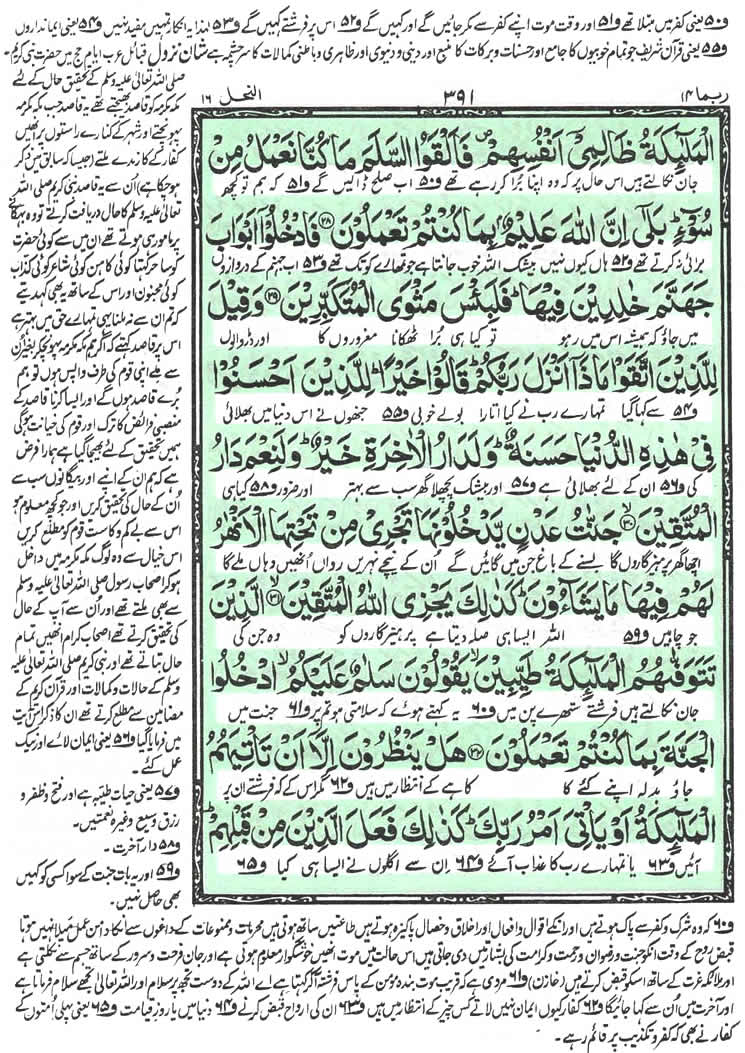 و۵۰ یعنی کفر میں مبتلا تھے و۵۱ اور وقت موت اپنے کفر سے مکر جائیں گے اور کہیں گے و۵۲ اس پر فرشتے کہیں گے و۵۳ لہٰذا یہ انکار تمہیں مفید نہیں و۵۴ یعنی ایمانداروں
و۵۵ یعنی قرآن شریف جو تمام خوبیوں کا جامع اور حسنات و برکات کا منبع اور دینی و دنیوی اور ظاہری و باطنی کمالات کا سرچشمہ ہے شان نزول قبائل عرب ایام حج میں حضرت نبی کریم
صلی اللہ تعالیٰ علیہ وسلم کے تحقیق حال کے لئے
مکہ مکرمہ کو قاصد بھیجتے تھے یہ قاصد جب مکہ مکرمہ
پہونچتے اور شہر کے کنارے راستوں پر انھیں
کفار کے کارندے ملتے (جیسا کہ سابق میں ذکر
ہو چکا ہے) ان سے یہ قاصد نبی کریم صلی اللہ
تعالیٰ علیہ وسلم کا حال دریافت کرتے تو وہ بہکانے
پر مامور ہی ہوتے تھے ان میں سے کوئی حضرت
کو ساحر کہتا کوئی کاہن کوئی شاعر کوئی کذاب
کوئی مجنون اور اس کے ساتھ یہ بھی کہدیتے
کہ تم ان سے نہ ملنا یہی تمہارے حق میں بہتر ہے
اس پر قاصد کہتے کہ اگر ہم مکہ مکرمہ پہونچ کر بغیر ان
سے ملے اپنی قوم کی طرف واپس ہوں تو ہم
برے قاصد ہوں گے اور ایسا کرنا قاصد کے
منصبی فرائض کا ترک اور قوم کی خیانت ہوگی
ہمیں تحقیق کے لئے بھیجا گیا ہے ہمارا فرض
ہے کہ ہم ان کے اپنے اور بیگانوں سب سے
ان کے حال کی تحقیق کریں اور جو کچھ معلوم ہو
اس سے بے کم و کاست قوم کو مطلع کریں
اس خیال سے وہ لوگ مکہ مکرمہ میں داخل
ہو کر اصحاب رسول صلی اللہ تعالیٰ علیہ وسلم
سے بھی ملتے تھے اور ان سے آپ کے حال
کی تحقیق کرتے تھے اصحاب کرام انھیں تمام
حال بتاتے تھے اور نبی کریم صلی اللہ تعالیٰ علیہ
وسلم کے حالات و کمالات اور قرآن کریم کے
مضامین سے مطلع کرتے تھے ان کا ذکر اس آیت
میں فرمایا گیا و۵۶ یعنی ایمان لائے اور نیک
عمل کئے۔
و۵۷ یعنی حیات طیبہ ہے اور فتح و ظفر و
رزق وسیع وغیرہ نعمتیں۔
و۵۸ دار آخرت۔
و۵۹ اور یہ بات جنت کے سوا کسی کو کہیں
بھی حاصل نہیں۔
ربما ۱۴
۳۹۱
النحل ۱۶
الْمَلٰٓئِكَةُ ظَالِمِیْۤ اَنْفُسِهِمْ ۪ فَاَلْقَوُا السَّلَمَ مَا كُنَّا نَعْمَلُ مِنْ
جان نکالتے ہیں اس حال پر کہ وہ اپنا برا کر رہے تھے و۵۰ اب صلح ڈالیں گے و۵۱ کہ ہم تو کچھ
سُوْٓءٍ ؕ بَلٰۤی اِنَّ اللّٰهَ عَلِیْمٌۢ بِمَا كُنْتُمْ تَعْمَلُوْنَ ﴿۲۸﴾ فَادْخُلُوْۤا اَبْوَابَ
برائی نہ کرتے تھے و۵۲ ہاں کیوں نہیں بیشک اللہ خوب جانتا ہے جو تمہارے کوتک تھے و۵۳ اب جہنم کے دروازوں
جَهَنَّمَ خٰلِدِیْنَ فِیْهَا ؕ فَلَبِئْسَ مَثْوَی الْمُتَكَبِّرِیْنَ ﴿۲۹﴾ وَقِیْلَ
میں جاؤ کہ ہمیشہ اس میں رہو تو کیا ہی برا ٹھکانا مغروروں کا اور ڈر والوں
لِلَّذِیْنَ اتَّقَوْا مَاذَاۤ اَنْزَلَ رَبُّكُمْ ؕ قَالُوْا خَیْرًا ؕ لِلَّذِیْنَ اَحْسَنُوْا
و۵۴ سے کہا گیا تمہارے رب نے کیا اتارا بولے خوبی و۵۵ جنھوں نے اس دنیا میں بھلائی
فِیْ هٰذِهِ الدُّنْیَا حَسَنَةٌ ؕ وَلَدَارُ الْاٰخِرَةِ خَیْرٌ ؕ وَلَنِعْمَ دَارُ
کی و۵۶ ان کے لئے بھلائی ہے و۵۷ اور بیشک پچھلا گھر سب سے بہتر اور ضرور و۵۸ کیا ہی
الْمُتَّقِیْنَ ﴿۳۰﴾ جَنّٰتُ عَدْنٍ یَّدْخُلُوْنَهَا تَجْرِیْ مِنْ تَحْتِهَا الْاَنْهٰرُ
اچھا گھر پرہیزگاروں کا بسنے کے باغ جن میں جائیں گے ان کے نیچے نہریں رواں انھیں وہاں ملے گا
لَهُمْ فِیْهَا مَا یَشَآءُوْنَ ؕ كَذٰلِكَ یَجْزِی اللّٰهُ الْمُتَّقِیْنَ ﴿۳۱﴾ الَّذِیْنَ
جو چاہیں و۵۹ اللہ ایسا ہی صلہ دیتا ہے پرہیزگاروں کو وہ جن کی
تَتَوَفّٰىهُمُ الْمَلٰٓئِكَةُ طَیِّبِیْنَ ۙ یَقُوْلُوْنَ سَلٰمٌ عَلَیْكُمُ ۙ ادْخُلُوا
جان نکالتے ہیں فرشتے ستھرے پن میں و۶۰ یہ کہتے ہوئے کہ سلامتی ہو تم پر و۶۱ جنت میں
الْجَنَّةَ بِمَا كُنْتُمْ تَعْمَلُوْنَ ﴿۳۲﴾ هَلْ یَنْظُرُوْنَ اِلَّاۤ اَنْ تَاْتِیَهُمُ
جاؤ بدلہ اپنے کئے کا کاہے کے انتظار میں ہیں و۶۲ مگر اس کے کہ فرشتے ان پر
الْمَلٰٓئِكَةُ اَوْ یَاْتِیَ اَمْرُ رَبِّكَ ؕ كَذٰلِكَ فَعَلَ الَّذِیْنَ مِنْ قَبْلِهِمْ ؕ
آئیں و۶۳ یا تمہارے رب کا عذاب آئے و۶۴ ان سے اگلوں نے ایسا ہی کیا و۶۵
و۶۰ کہ وہ شرک و کفر سے پاک ہوتے ہیں اور انکے اقوال و افعال اور اخلاق و خصال پاکیزہ ہوتے ہیں طاعتیں ساتھ ہوتی ہیں محرمات و ممنوعات کے داغوں سے انکا دامن عمل میلا نہیں ہوتا
قبض روح کے وقت انکو جنت و رضوان و رحمت و کرامت کی بشارتیں دی جاتی ہیں اس حالت میں موت انھیں خوشگوار معلوم ہوتی ہے اور جان فرحت و سرور کے ساتھ جسم سے نکلتی ہے
اور ملائکہ عزت کے ساتھ اسکو قبض کرتے ہیں (خازن) و۶۱ مروی ہے کہ قریب موت بندہ مؤمن کے پاس فرشتہ آکر کہتا ہے اے اللہ کے دوست تجھ پر سلام اور اللہ تعالیٰ تجھے سلام فرماتا ہے
اور آخرت میں ان سے کہا جائیگا و۶۲ کفار کیوں ایمان نہیں لاتے کس چیز کے انتظار میں ہیں و۶۳ ان کی ارواح قبض کرنے و۶۴ دنیا میں یا روز قیامت و۶۵ یعنی پہلی امتوں کے
کفار نے بھی کہ کفر و تکذیب پر قائم رہے۔